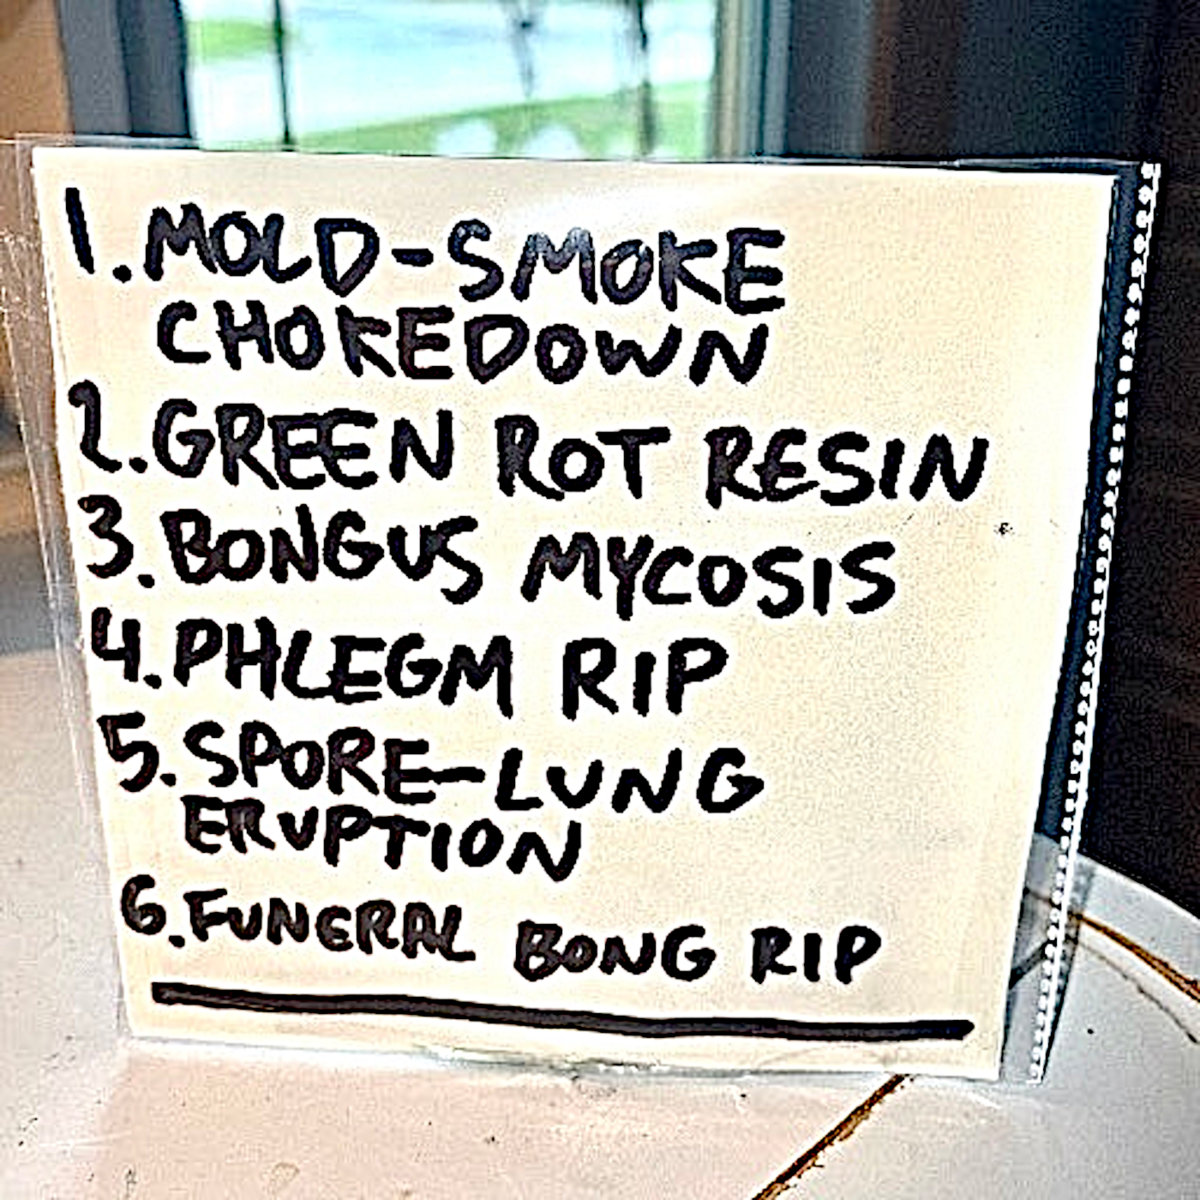 1. MOLD-SMOKE
CHOKEDOWN
2. GREEN ROT RESIN
3. BONGUS MYCOSIS
4. PHLEGM RIP
5. SPORE-LUNG
ERUPTION
6. FUNERAL BONG RIP